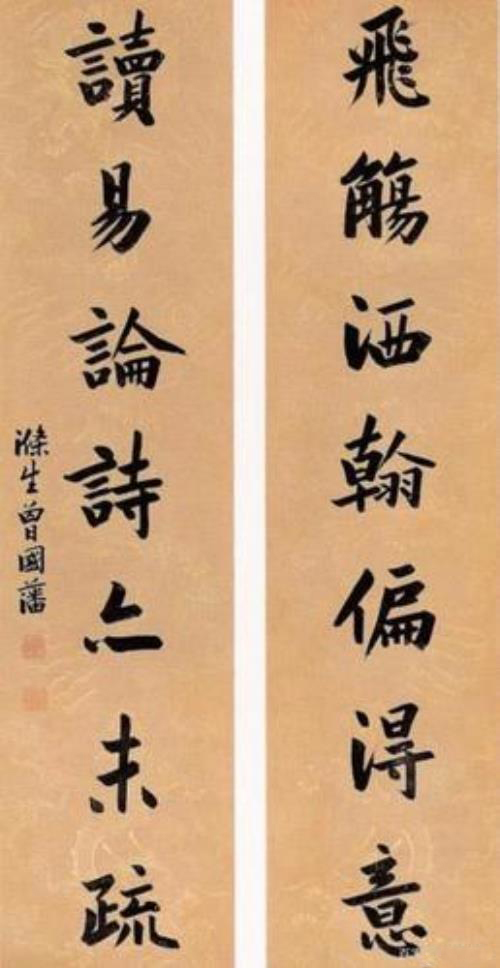 飛觴洒翰偏得意
讀易論詩亦未疏
滌生曾國藩